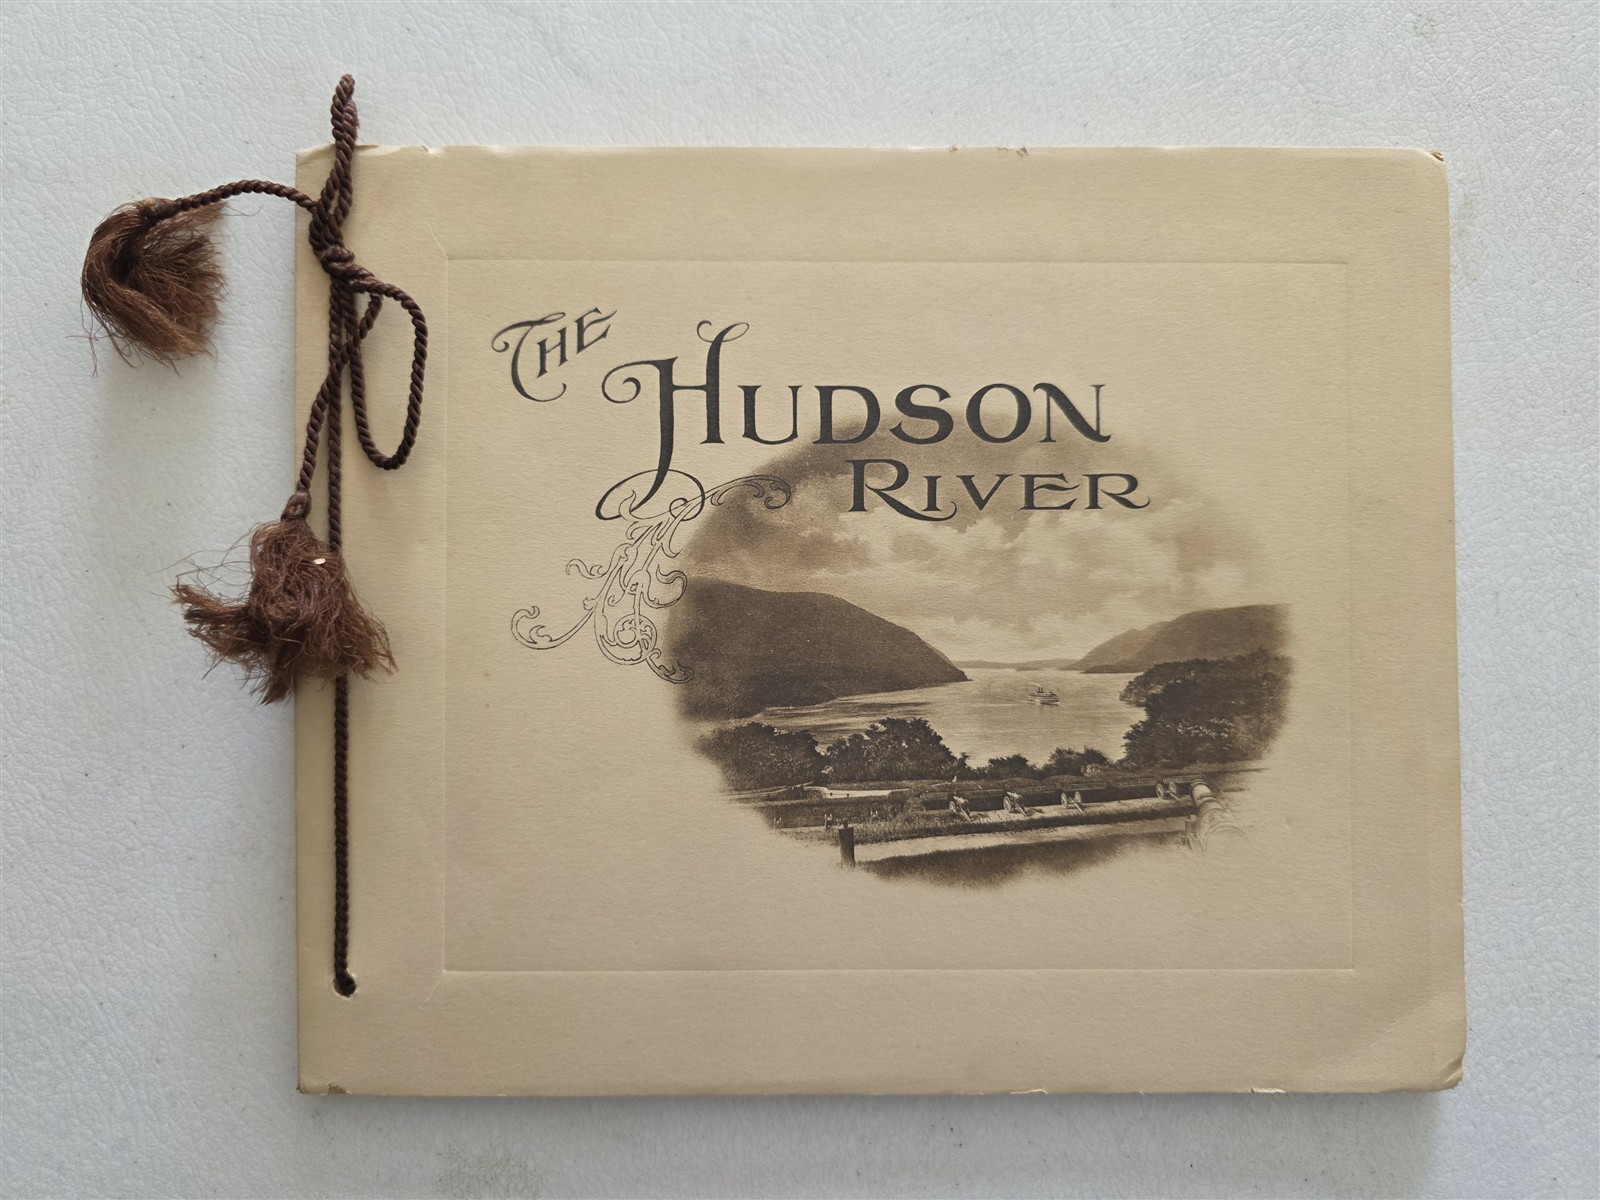 THE
HUDSON
RIVER